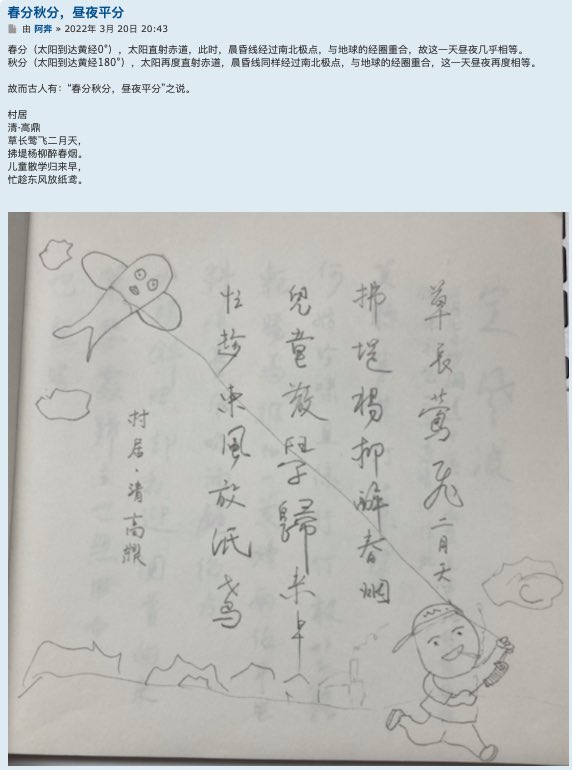 春分秋分，昼夜平分
由 阿奔 » 2022年 3月 20日 20:43
春分（太阳到达黄经0°），太阳直射赤道，此时，晨昏线经过南北极点，与地球的经圈重合，故这一天昼夜几乎相等。
秋分（太阳到达黄经180°），太阳再度直射赤道，晨昏线同样经过南北极点，与地球的经圈重合，这一天昼夜再度相等。
故而古人有：“春分秋分，昼夜平分”之说。
村居
清·高鼎
草长莺飞二月天，
拂堤杨柳醉春烟。
儿童散学归来早，
忙趁东风放纸鸢。
草长莺飞二月天
拂堤楊柳醉春烟
兒童散學歸来早
忙趁東風放纸鸢
村居·清高